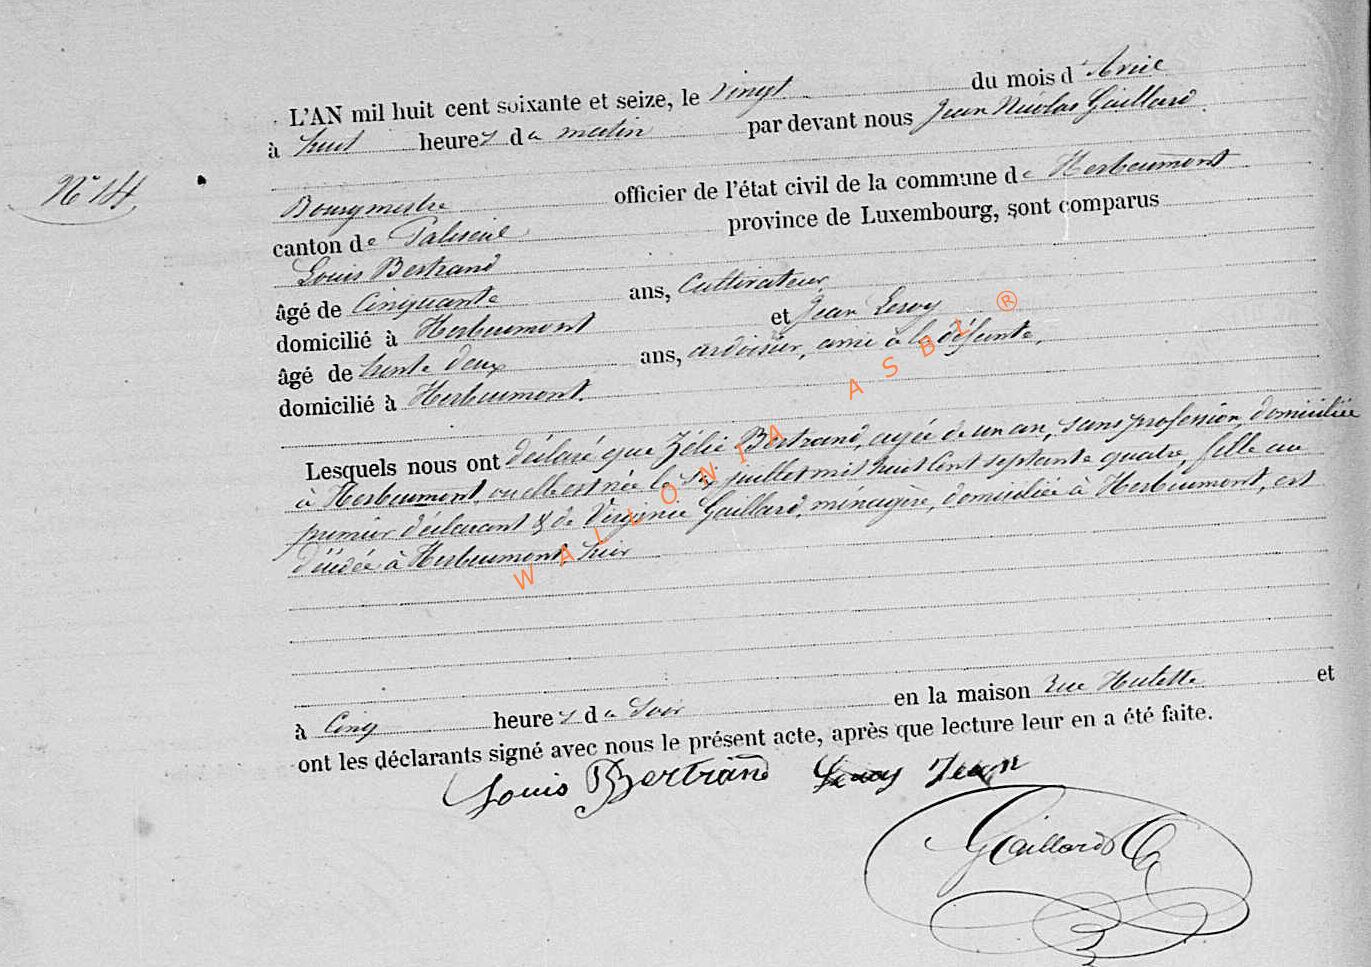 L'AN mil huit cent soixante et seize, le vingt du mois d'Avril
à huit heures du matin par devant nous Jean Nicolas Gaillard
N° 14
Bourgmestre officier de l'état civil de la commune de Herbeumont
canton de Paliseul province de Luxembourg, sont comparus
Louis Bertrand
âgé de Cinquante ans, Cultivateur
domicilié à Herbeumont et Jean Leroy
âgé de trente deux ans, ardoisier, ami à la défunte,
domicilié à Herbeumont.
Lesquels nous ont déclaré que Zélie Bertrand, agée de un an, sans profession, domiciliée
à Herbeumont, où elle est née le six juillet mil huit cent septante quatre, fille au
premier déclarant & de Virginie Gaillard, ménagère, domiciliée à Herbeumont, est
décédée à Herbeumont, hier
à Cinq heures du Soir en la maison rue Hulette et
ont les déclarants signé avec nous le présent acte, après que lecture leur en a été faite.
Louis Bertrand Leroy Jean
Gaillard
WALLONIA ASBL ®